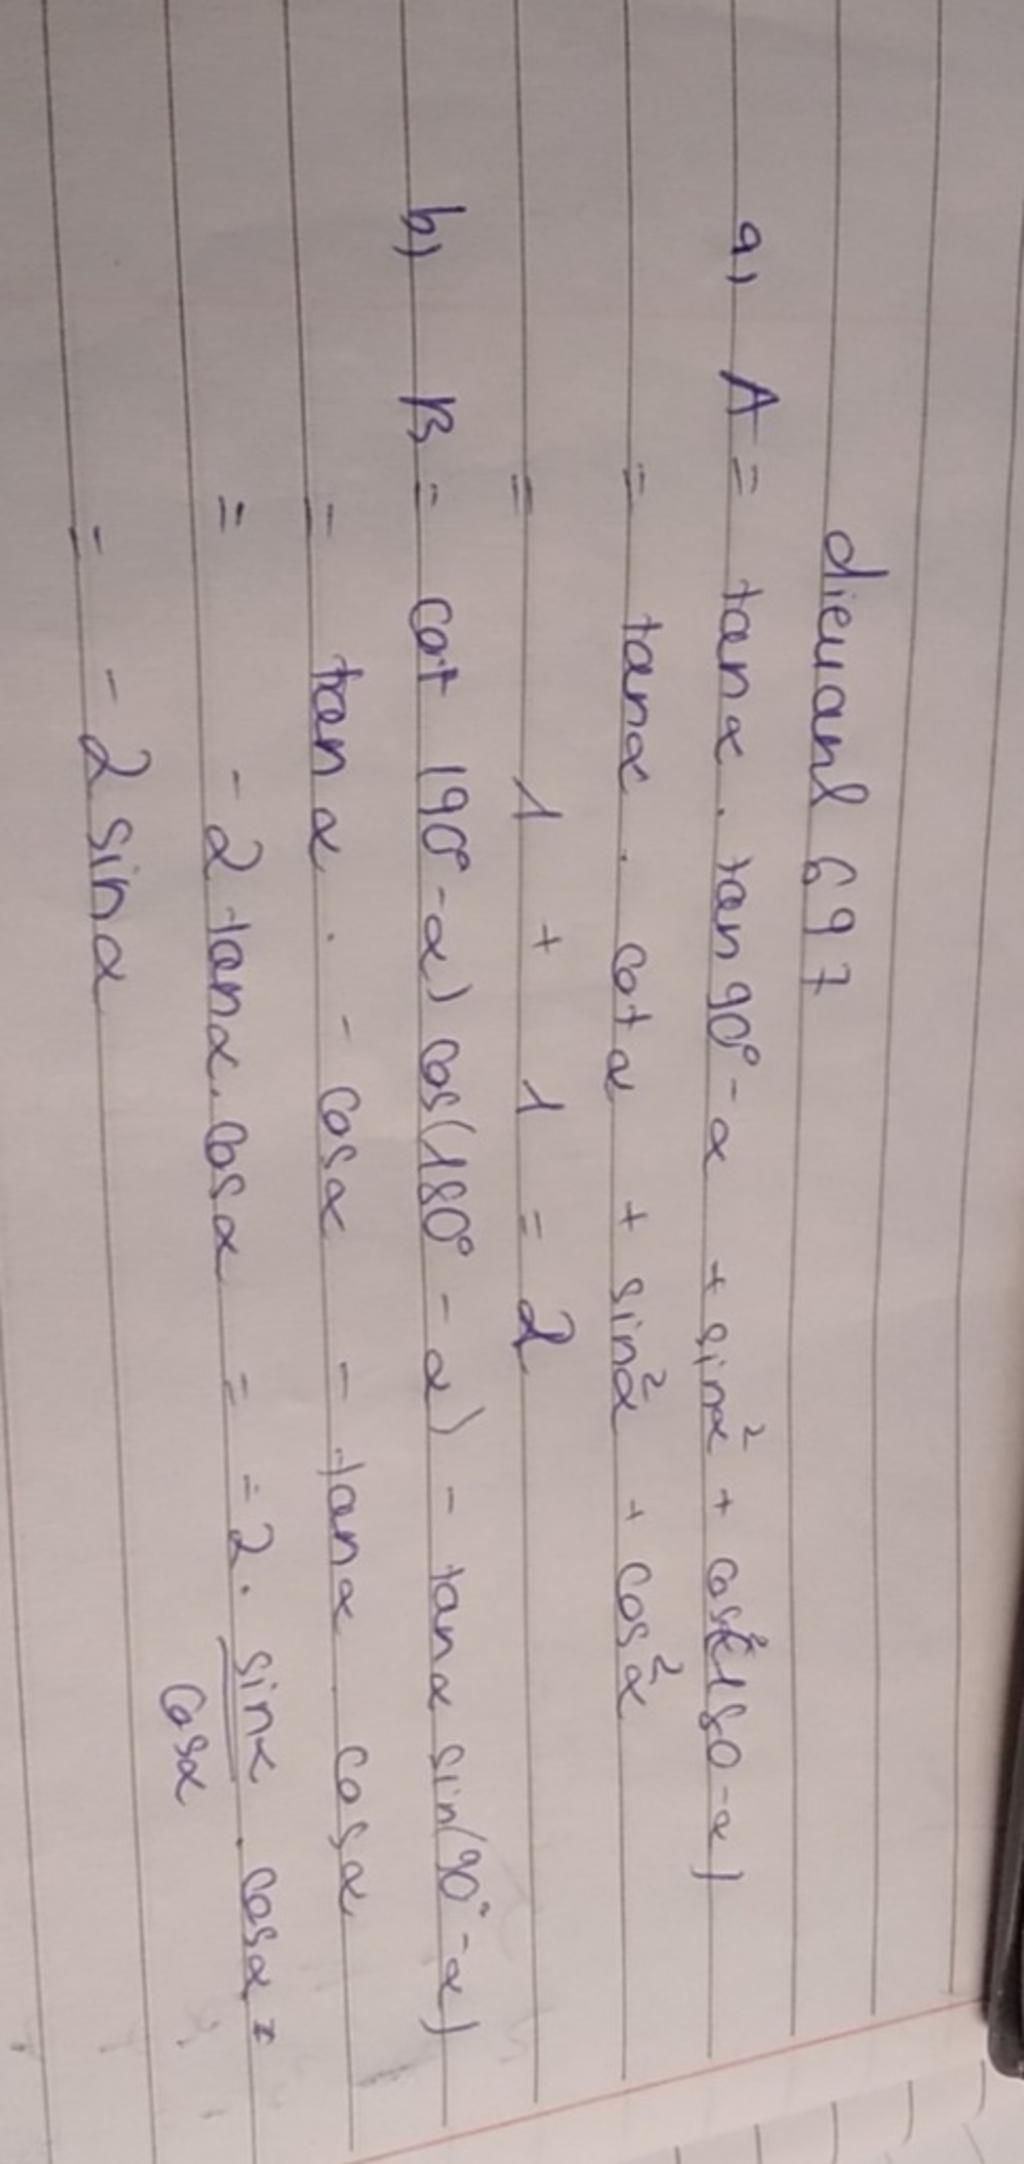 dieuanl697
a) A = tanα . tan 90° - α + sinα² + cos²(180 - α)
= tanα . cotα + sin²α + cos²α
= 1 + 1 = 2
b) B = cot (90° - α) cos(180° - α) - tanα sin(90° - α)
= tanα . - cosα - tanα . cosα
= - 2 tanα . cosα = - 2 . sinα/cosα . cosα =
= - 2 sinα